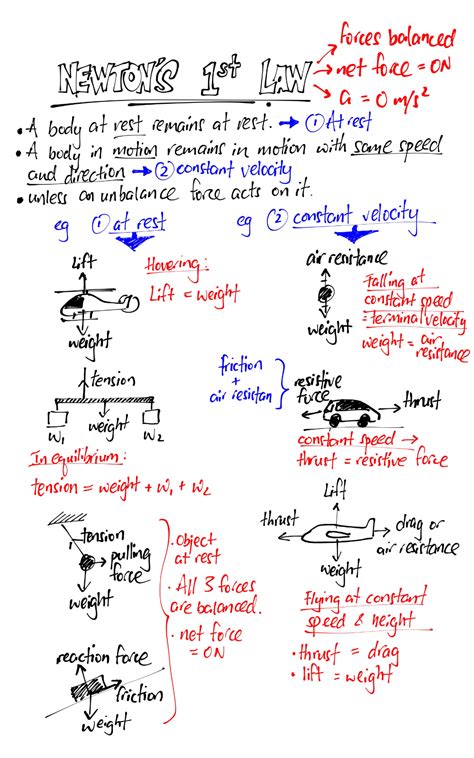 NEWTON'S 1st LAW
→ forces balanced
→ net force = 0N
→ a = 0 m/s²
• A body at rest remains at rest. → ① At rest
• A body in motion remains in motion with same speed
and direction → ② constant velocity
• unless an unbalance force acts on it.
eg ① at rest
eg ② constant velocity
Lift
weight
Hovering:
Lift = weight
air resistance
weight
Falling at
constant speed
= terminal velocity
weight = air
resistance
tension
weight
W₁
W₂
In equilibrium:
tension = weight + W₁ + W₂
friction
+
air resistan
resistive
force
thrust
constant speed →
thrust = resistive force
tension
pulling
force
weight
reaction force
friction
weight
• object
at rest
• All 3 forces
are balanced.
• net force
= 0N
Lift
thrust
drag or
air resistance
weight
Flying at constant
speed & height
• thrust = drag
• lift = weight